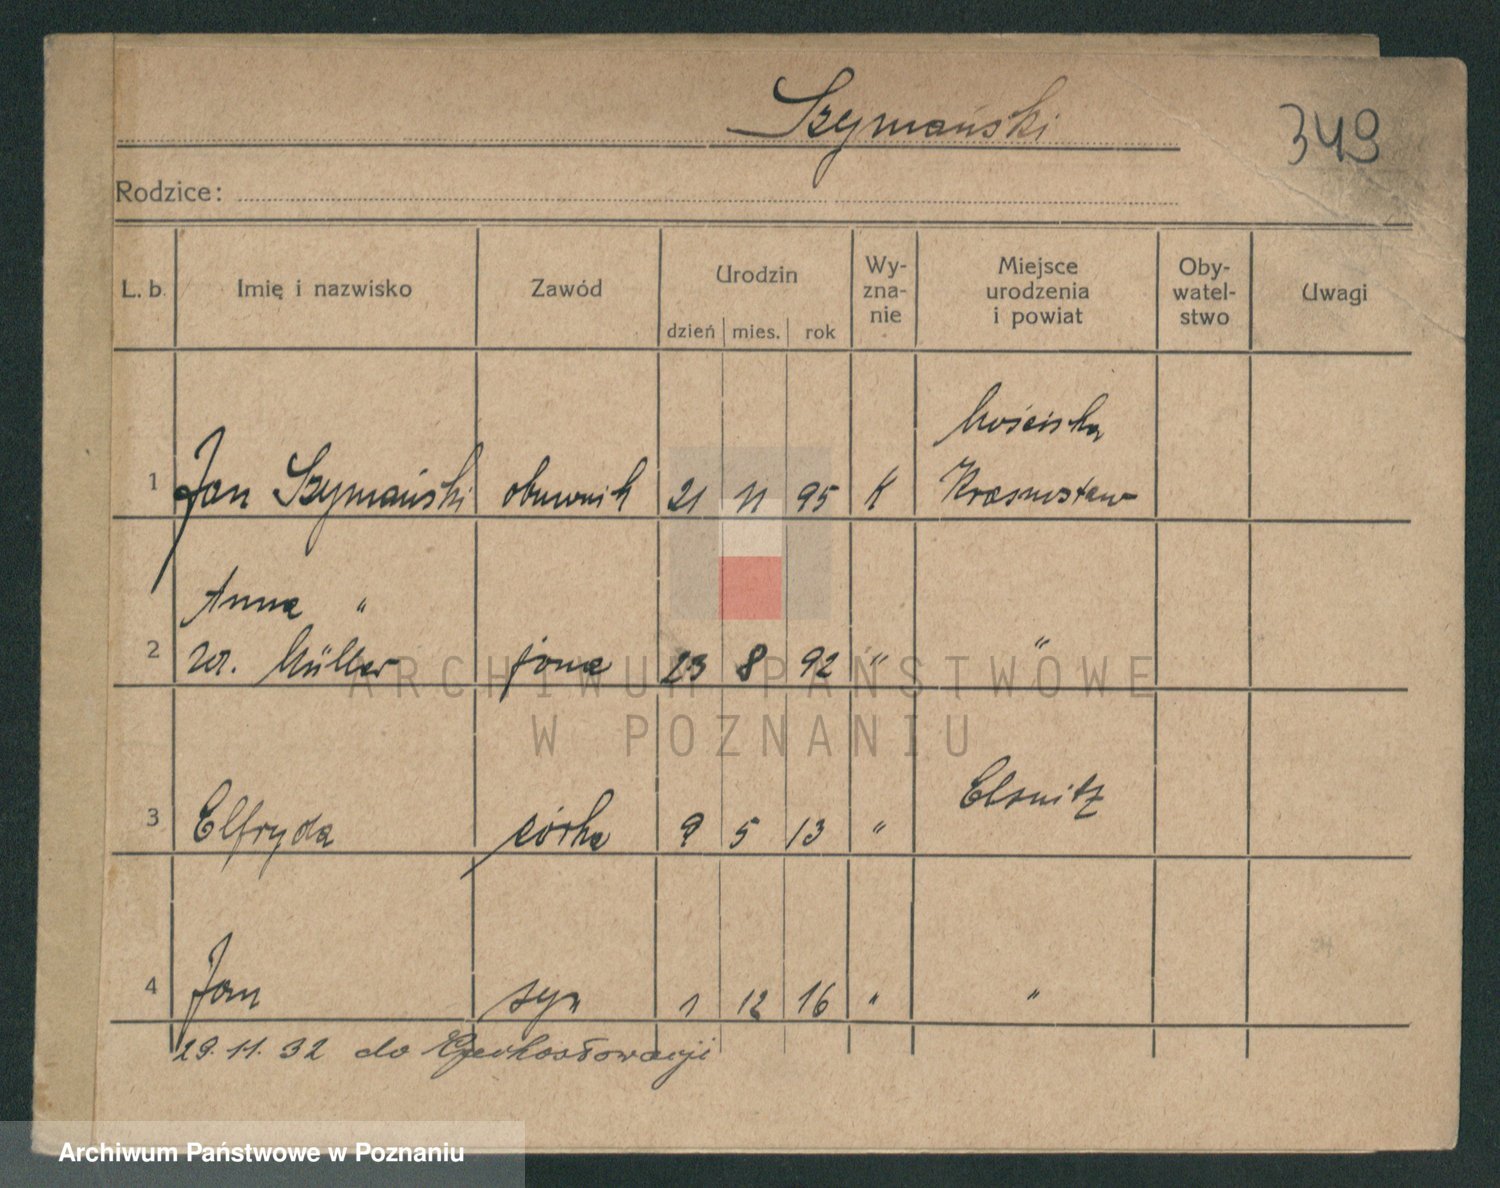 Szymański
349
Rodzice:
L. b. Imię i nazwisko Zawód Urodzin Wy-zna-nie Miejsce urodzenia i powiat Oby-watel-stwo Uwagi
dzień mies. rok
Mościska
1 Jan Szymański obuwnik 21 11 95 K Krasnystaw
Anna "
2 ur. Müller żona 23 8 92 " "
Elsnitz
3 Elfryda córka 9 5 13 "
4 Jan syn 1 12 16 " "
29. 11. 32 do Czechosłowacji
ARCHIWUM PAŃSTWOWE
W POZNANIU
Archiwum Państwowe w Poznaniu